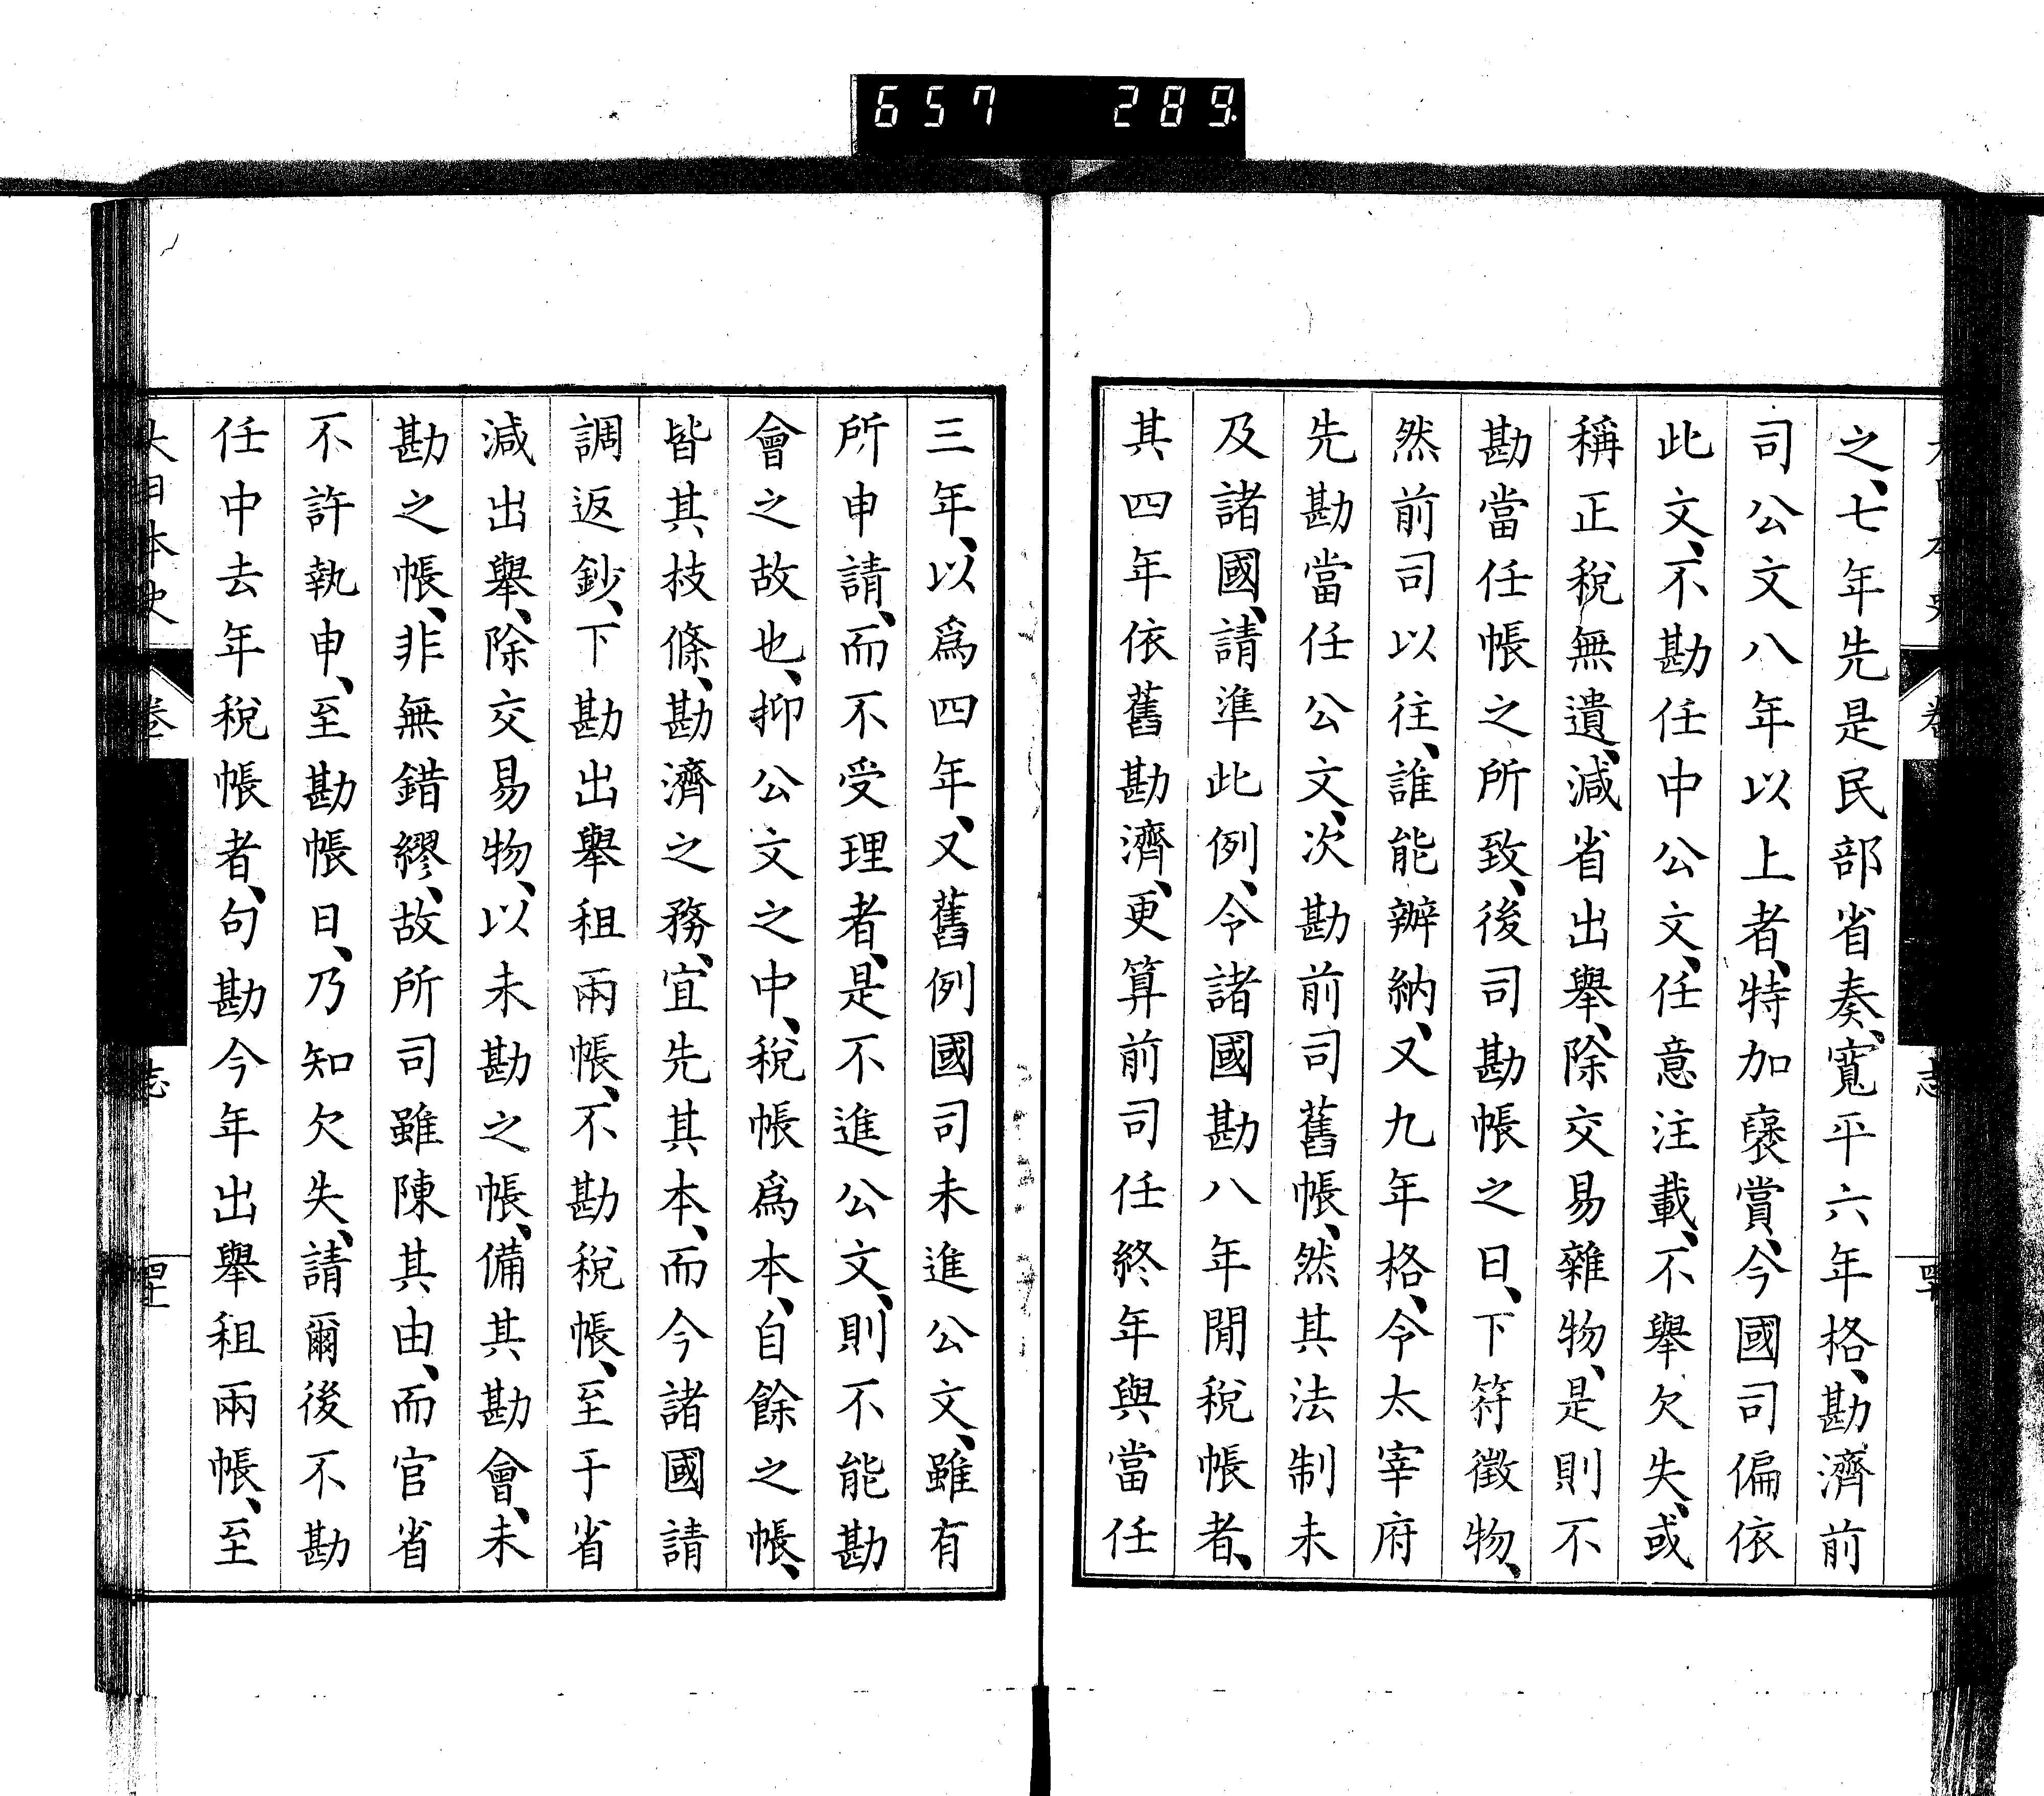 657 289
之、七年先是民部省奏、寬平六年格、勘濟前
司公文八年以上者、特加褒賞、今國司偏依
此文、不勘任中公文、任意注載、不舉欠失、或
稱正稅無遺、減省出舉、除交易雜物、是則不
勘當任帳之所致、後司勘帳之日、下符徵物、
然前司以往、誰能辦納、又九年格、令太宰府
先勘當任公文、次勘前司舊帳、然其法制未
及諸國、請準此例、令諸國勘八年閒稅帳者、
其四年依舊勘濟、更算前司任終年與當任
三年、以爲四年、又舊例國司未進公文、雖有
所申請、而不受理者、是不進公文、則不能勘
會之故也、抑公文之中、稅帳爲本、自餘之帳、
皆其枝條、勘濟之務、宜先其本、而今諸國請
調返鈔、下勘出舉租兩帳、不勘稅帳、至于省
減出舉、除交易物、以未勘之帳、備其勘會、未
勘之帳、非無錯繆、故所司雖陳其由、而官省
不許執申、至勘帳日、乃知欠失、請爾後不勘
任中去年稅帳者、句勘今年出舉租兩帳、至
大日本史 卷 志